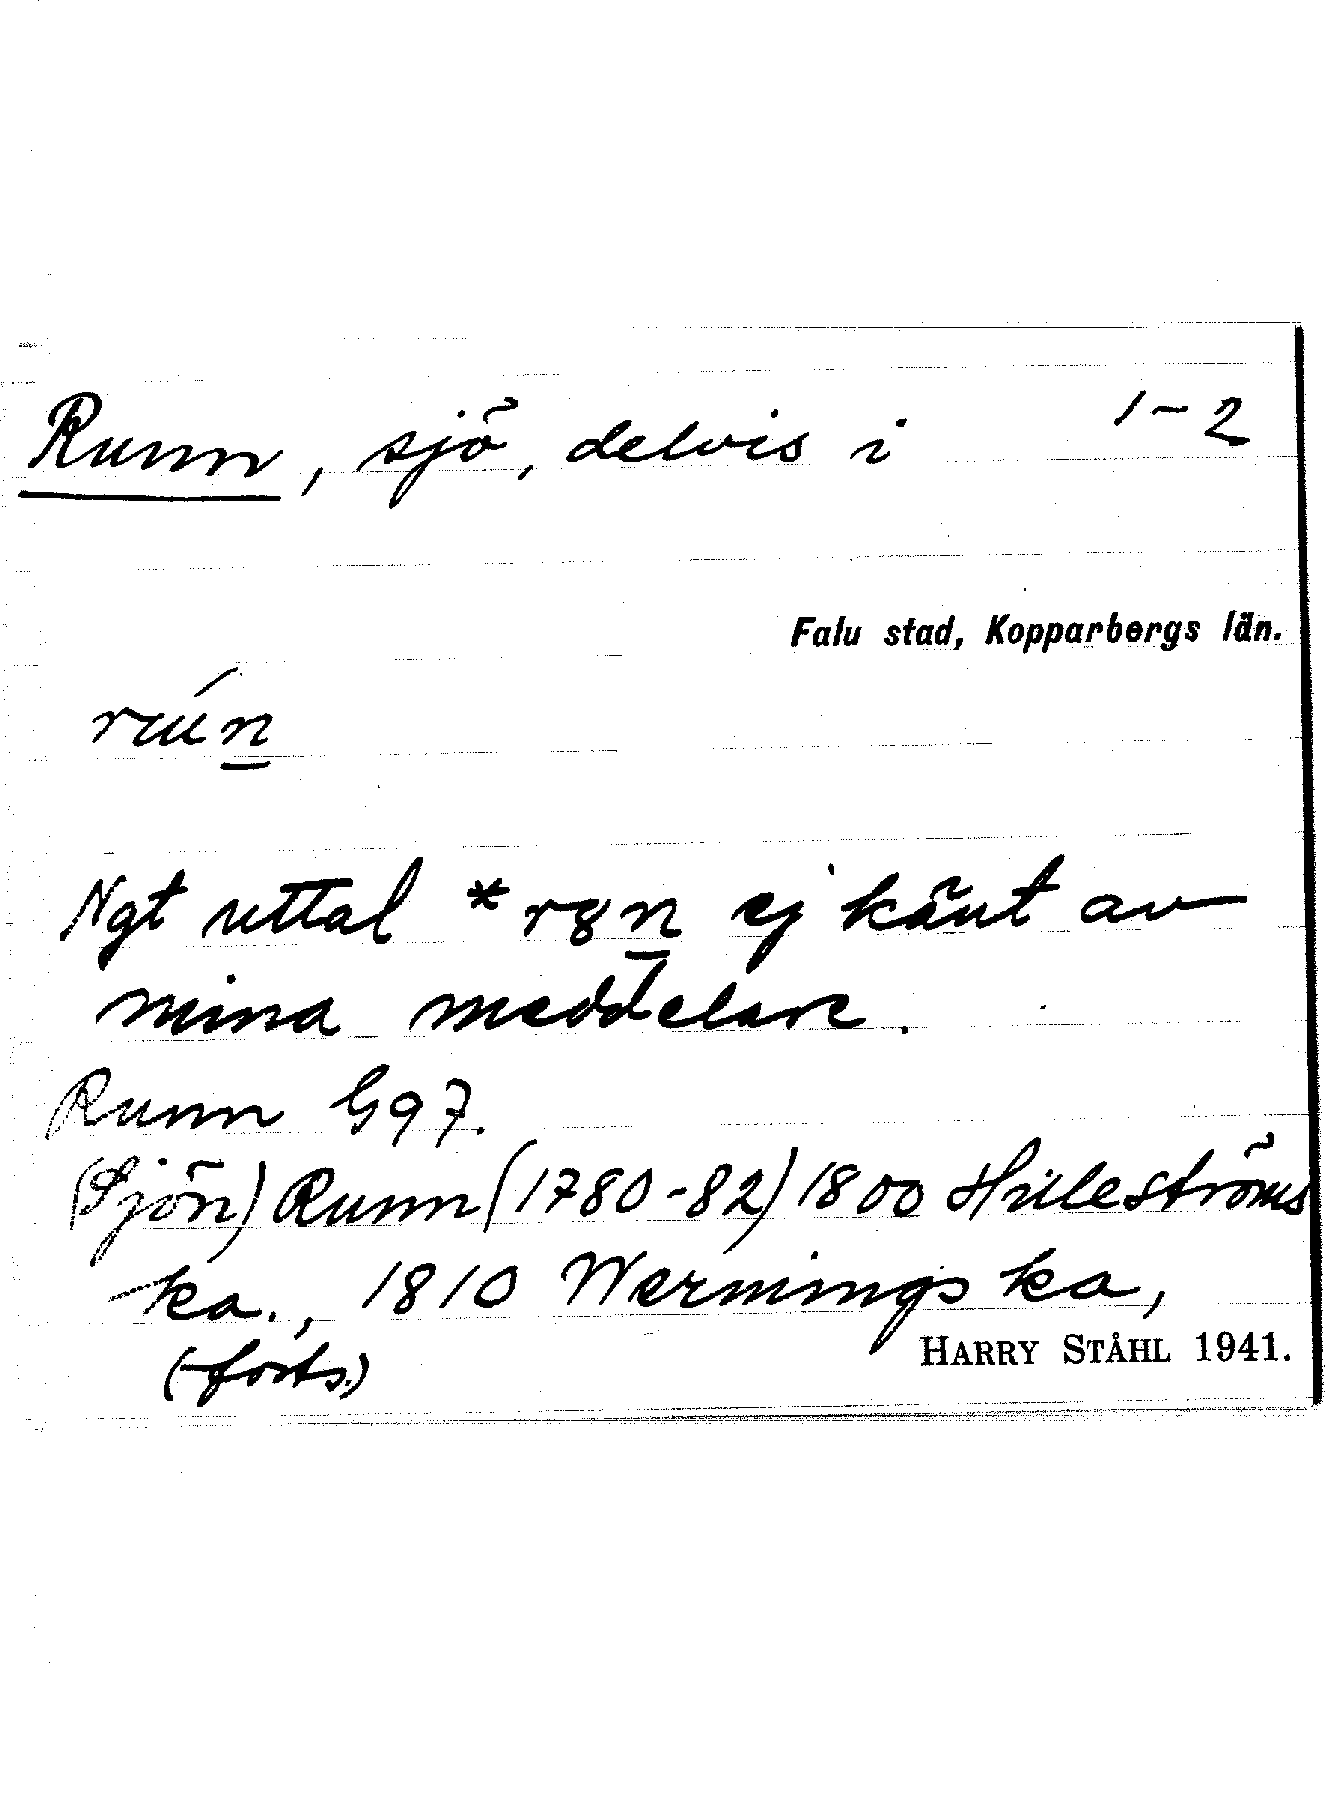 Runn, sjö, delvis i 1-2
Falu stad, Kopparbergs län.
Ngt uttal *r8n ej känt av
mina meddelare.
Runn G97.
(Sjön) Runn (1780-82) 1800 Hüleströms
ka., 1810 Wernings ka,
(forts.) HARRY STÅHL 1941.